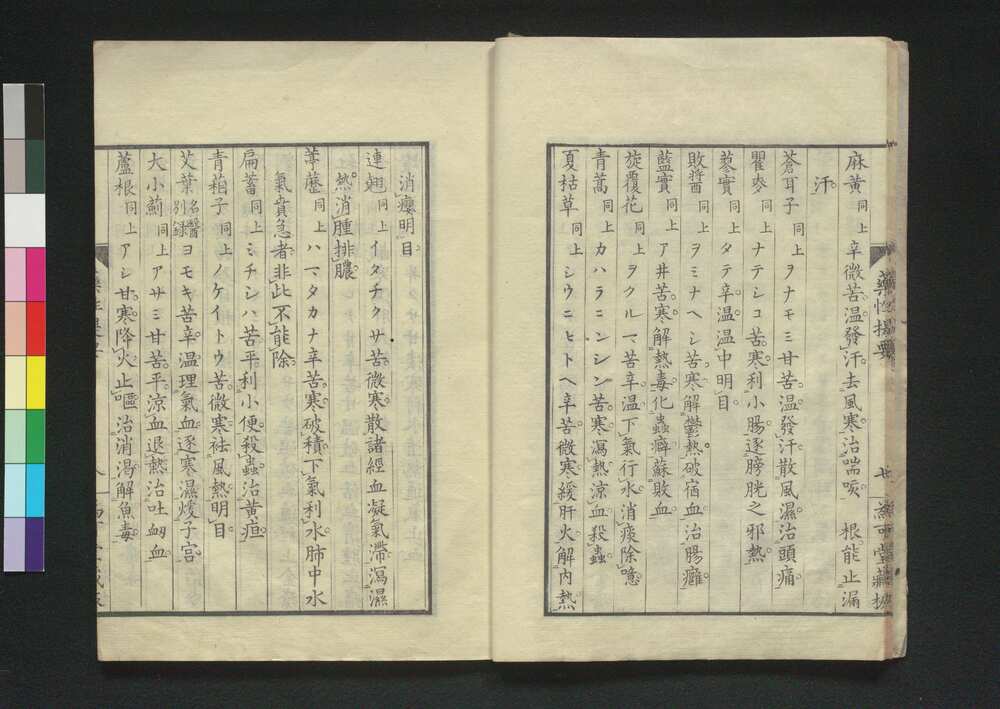 麻黄同上 辛微苦温發汗去風寒治喘咳 根能止漏
汗
蒼耳子同上 ヲナモミ甘苦温發汗散風濕治頭痛
瞿麥同上 ナテシコ苦寒利小腸逐膀胱之邪熱
蓼實同上 タテ辛温温中明目
敗醬同上 ヲミナヘシ苦寒解鬱熱破宿血治腸癰
藍實同上 ア井苦寒解熱毒化蟲癖蘇敗血
旋覆花同上 ヲクルマ苦辛温下氣行水消痰除噫
青蒿同上 カハラニンシン苦寒瀉熱涼血殺蟲
夏枯草同上 シウニヒトヘ辛苦微寒緩肝火解内熱
藥性提要
消癭明目
連翹同上 イタチクサ苦微寒散諸經血凝氣滯瀉濕
熱消腫排膿
葶藶同上 ハマタカナ辛苦寒破積下氣利水肺中水
氣賁急者非此不能除
扁蓄同上 ミチシハ苦平利小便殺蟲治黄疸
青葙子同上 ノケイトウ苦微寒祛風熱明目
艾葉名醫別錄 ヨモキ苦辛温理氣血逐寒濕煖子宮
大小薊同上 アサミ甘苦平涼血退熱治吐衂血
蘆根同上 アシ甘寒降火止嘔治消渇解魚毒